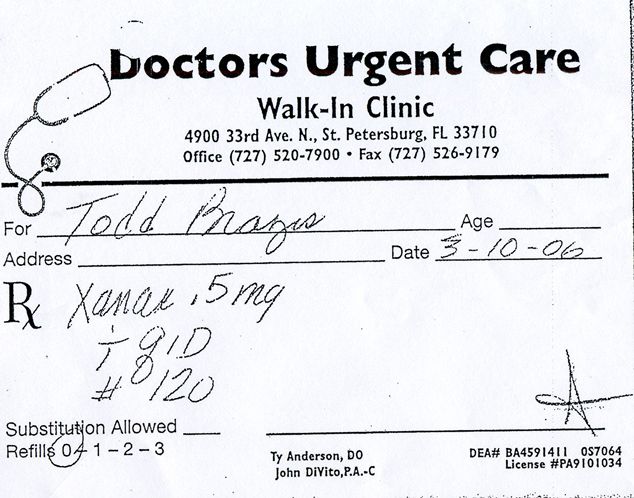 Doctors Urgent Care
Walk-In Clinic
4900 33rd Ave. N., St. Petersburg, FL 33710
Office (727) 520-7900 • Fax (727) 526-9179
For Todd Brazis Age
Address Date 3-10-06
Rx Xanax .5mg
T QID
# 120
Substitution Allowed
Refills 0 - 1 - 2 - 3
Ty Anderson, DO DEA# BA4591411 OS7064
John DiVito,P.A.-C License #PA9101034